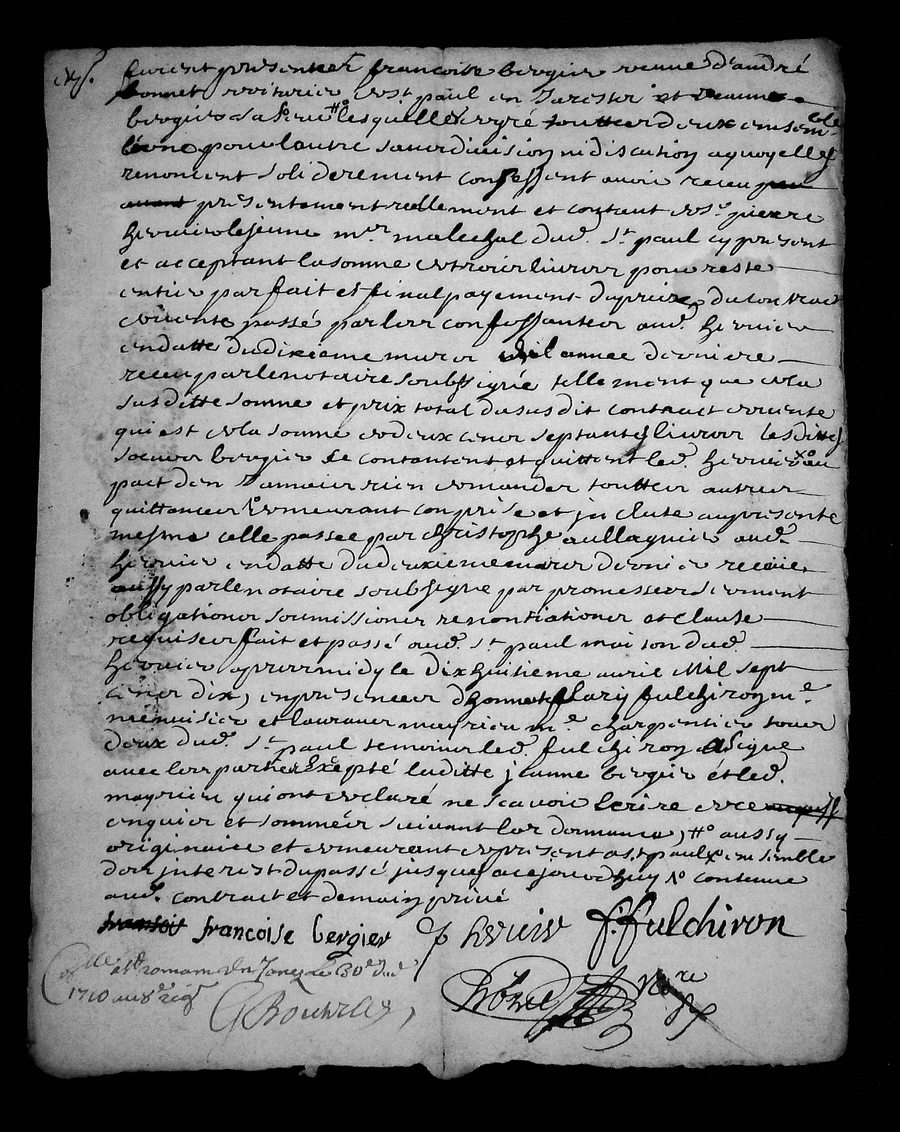 furent presentes francoise bergier veuve d'andré
bonnet voiturier de st paul en Jarestz et Jeanne
bergier sa soeur #° lesquelles de gré touttes deux ensemble
l'une pour l'autre sans division ni discution a quoy elles
renoncent solidérement confessent avoir receu peu
avant présentement réellement et contant de sr. pierre
hervier le jeune mre. maréchal dud. st. paul cy présent
et acceptant la somme de trois livres pour reste
entier parfait et final payement du prix du contract
de vente passé par les confessantes aud. hervier
en datte du dixieme mars de l'année derniere
receu par le notaire soubsigné tellement que de la
susditte somme et prix total du susdit contract de vente
qui est de la somme de deux cens septante livres lesdittes
soeurs bergier se contantent et quittent led. hervier x° au
pact d'en Jamais rien demander touttes autres
quittances v° demeurant comprise et incluse au présente
mesme celle passée par Christophe aullagnier aud.
hervier en datte du deuxieme mars dernier receüe
aussy par le notaire soubsigné par promesses serment
obligations soumissions renontiations et clause
requises fait et passé aud. st. paul maison dud.
hervier apres midy le dix huitieme avril Mil sept
cens dix, en présences d'honnete Clary fulchiron me.
menuisier et laurans mayrieu me. charpentier tous
deux dud. st. paul temoins led. fulchiron a signé
avec les parties Excepté laditte jeanne bergier et led.
mayrieu qui ont declaré ne scavoir lecrire de ce
enquis et sommés suivant lordonnance, #° aussy
originaire et demeurant de present a st paul x° ensemble
dou interest du passé jusques a ce jourdhuy v° contenue
aud. contract et demain privé
francoise bergier J hervier f. fulchiron
Collé a st romain en Jarez le 30e d
1710
nore